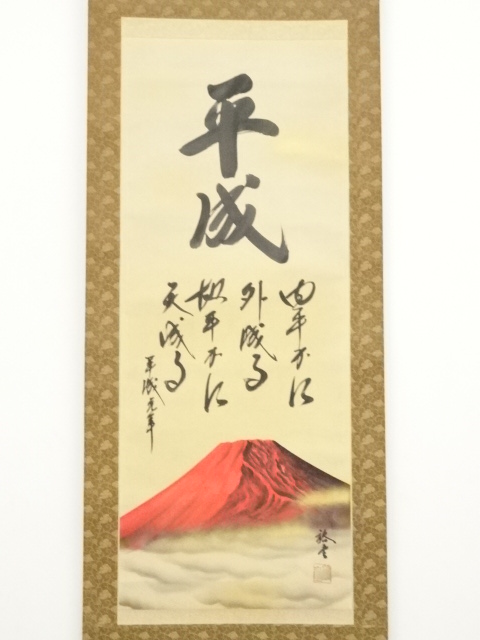 平成
内平かに
外成る
地平かに
天成る
平成元年